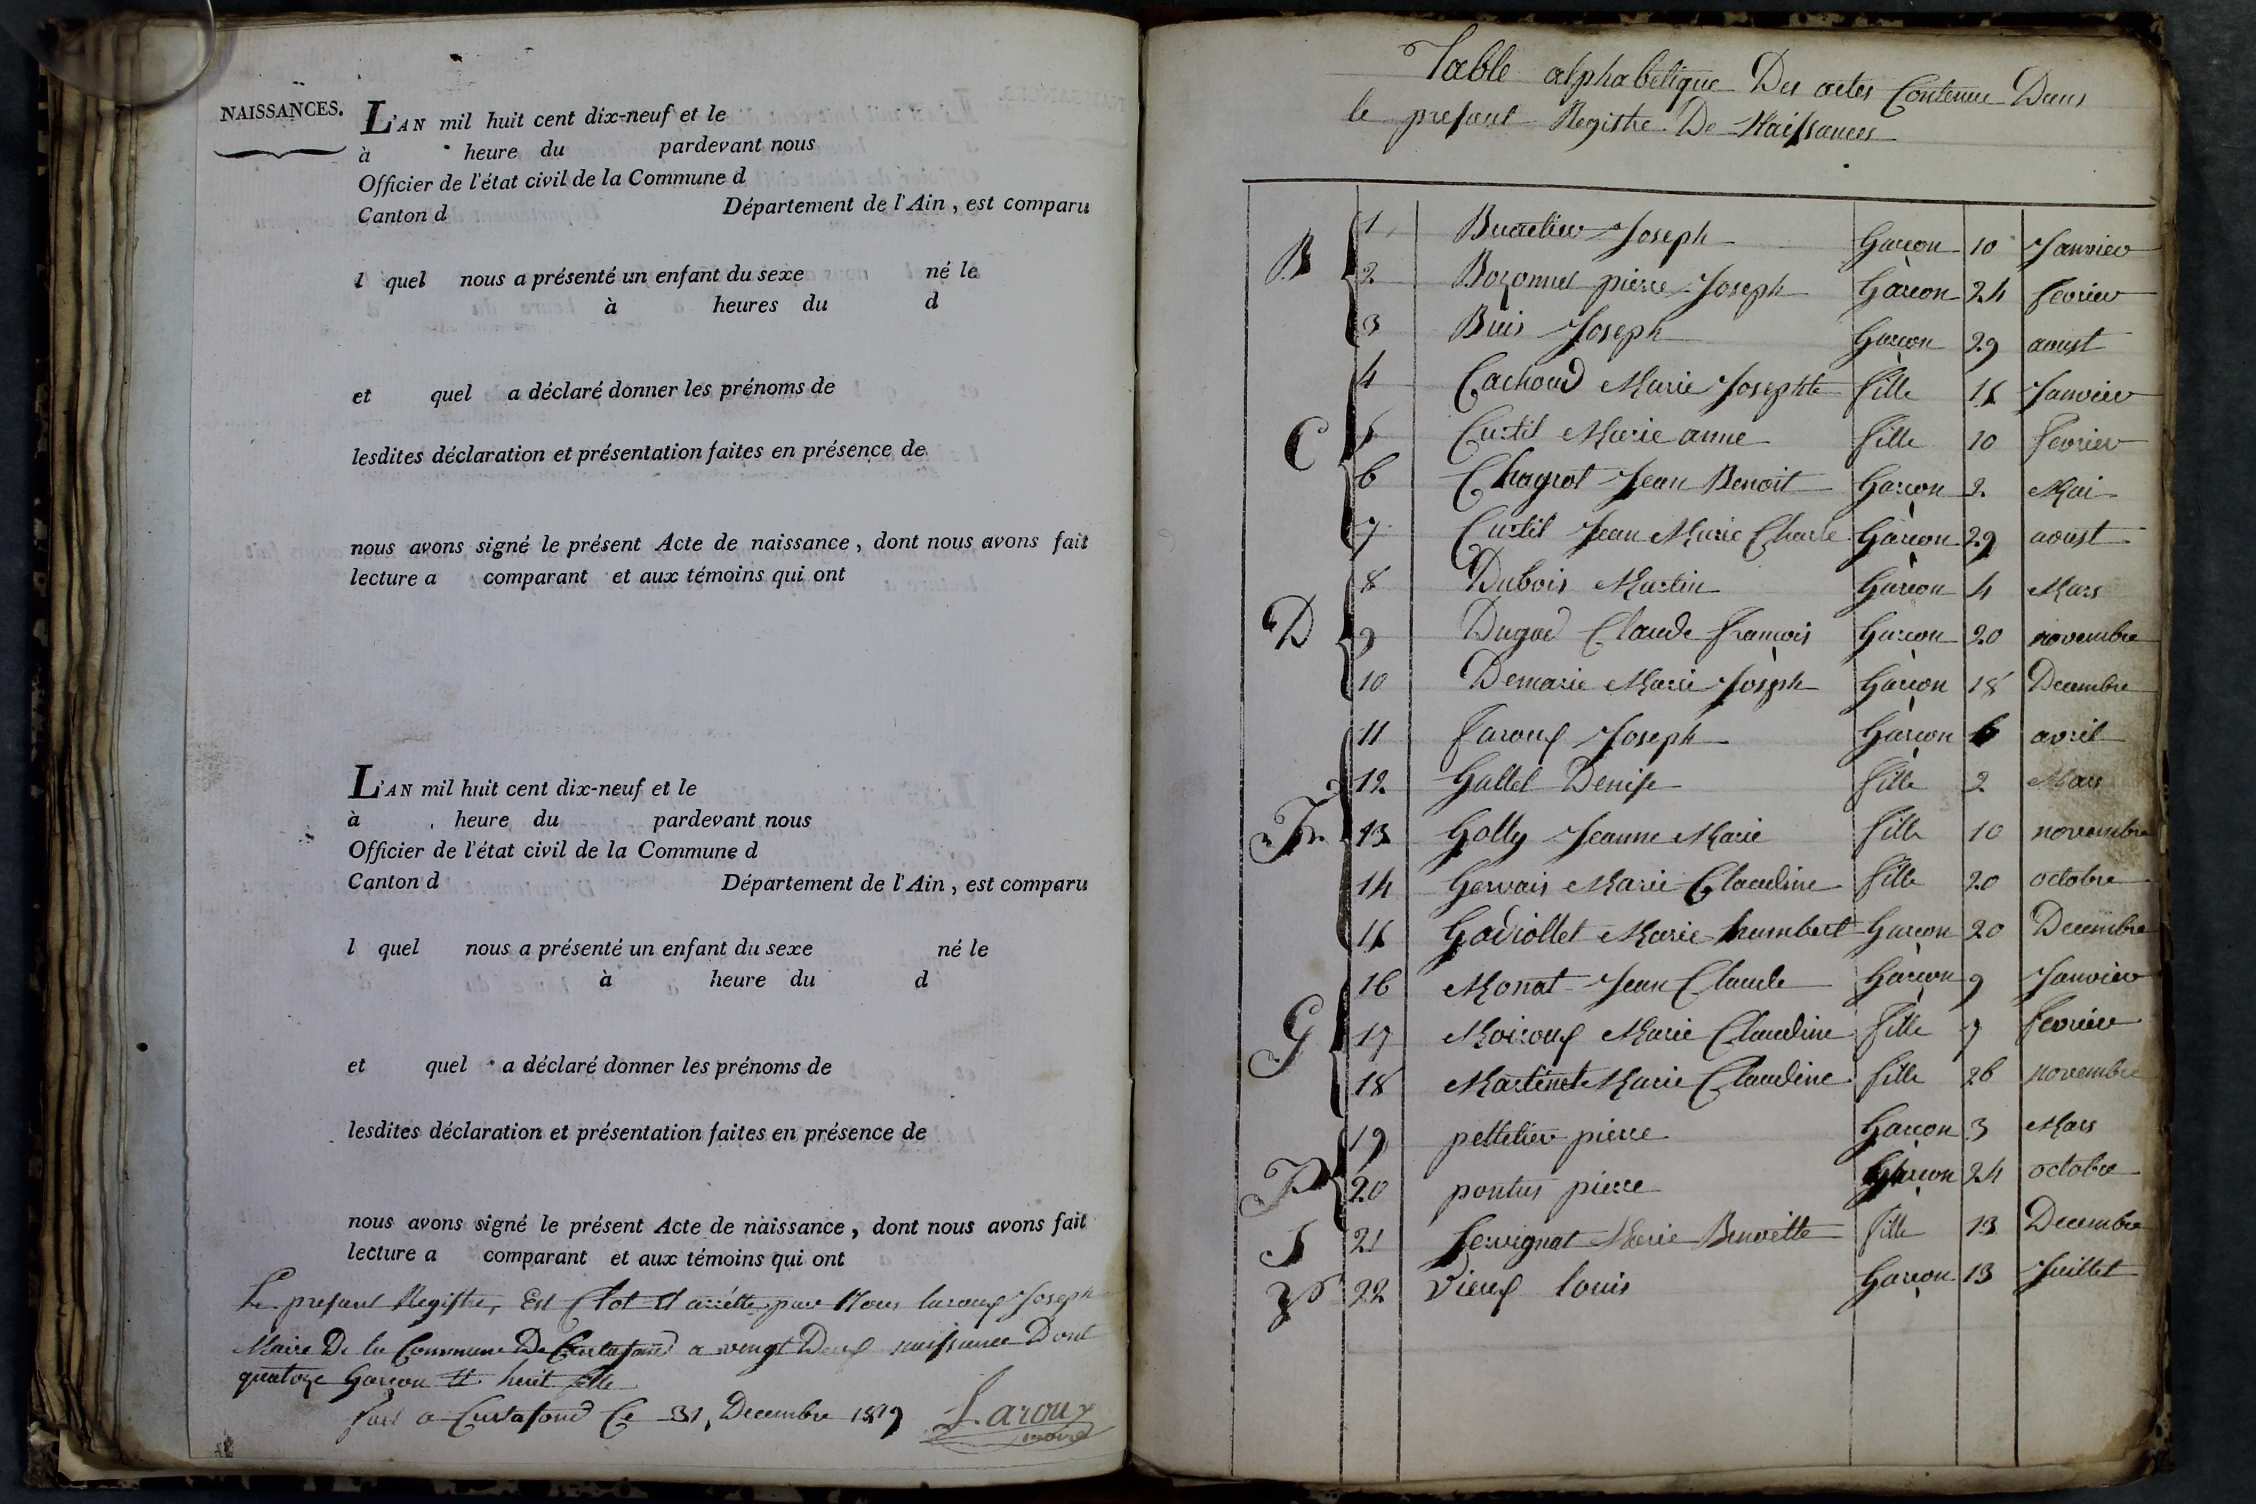 NAISSANCES.
L'AN mil huit cent dix-neuf et le
à heure du pardevant nous
Officier de l'état civil de la Commune d
Canton d Département de l'Ain, est comparu
l quel nous a présenté un enfant du sexe né le
à heures du d
et quel a déclaré donner les prénoms de
lesdites déclaration et présentation faites en présence de
nous avons signé le présent Acte de naissance, dont nous avons fait
lecture a comparant et aux témoins qui ont
L'AN mil huit cent dix-neuf et le
à heure du pardevant nous
Officier de l'état civil de la Commune d
Canton d Département de l'Ain, est comparu
l quel nous a présenté un enfant du sexe né le
à heure du d
et quel a déclaré donner les prénoms de
lesdites déclaration et présentation faites en présence de
nous avons signé le présent Acte de naissance, dont nous avons fait
lecture a comparant et aux témoins qui ont
Le present Registre, Est Clot Et arrétté par Nous laroux Joseph
Maire De la Commune De Curtafond a vingt Deux naissance Dont
quatoze Garçon Et huit fille
fait a Curtafond Ce 31, Decembre 1819 Laroux
maire
Table alphabetique Des actes Contenue Dans
le present Registre De Naissances
B 1 Joseph Garçon 10 Janvier
2 Bozonnet pierre Joseph Garçon 24 fevrier
3 Buis Joseph Garçon 29 aoust
4 Cachoud Marie Josephte fille 15 Janvier
C 5 Curtil Marie anne fille 10 fevrier
6 Chagrot Jean Benoit Garçon 2 Mai
7 Curtil Jean Marie Charle Garçon 29 aoust
8 Dubois Martin Garçon 4 Mars
D 9 Claude françois Garçon 20 novembre
10 Demarie Marie Joseph Garçon 18 Decembre
11 Faroux Joseph Garçon 6 avril
12 Gallet Denise fille 2 Mars
F 13 Golly Jeanne Marie fille 10 novembre
14 Gervais Marie Claudine fille 20 octobre
15 Godiollet Marie humbert Garçon 20 Decembre
16 Monat Jean Claude Garçon 9 Janvier
G 17 Moiroux Marie Claudine fille 7 fevrier
18 Martinet Marie Claudine fille 26 novembre
19 pelletier pierre Garçon 3 Mars
P 20 pontus pierre Garçon 24 octobre
S 21 Servignat Marie Benoitte fille 13 Decembre
22 Vieux louis Garçon 13 Juillet